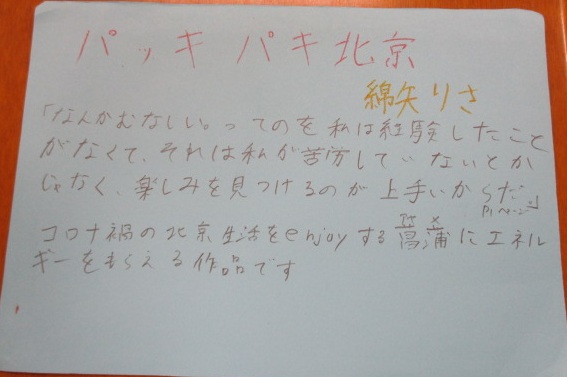 パッキパキ北京
綿矢りさ
「なんかむなしい。ってのを私は経験したこと
がなくて、それは私が苦労していないとか
じゃなく、楽しみを見つけるのが上手いからだ」
コロナ禍の北京生活をenjoyする菖蒲にエネル
ギーをもらえる作品です